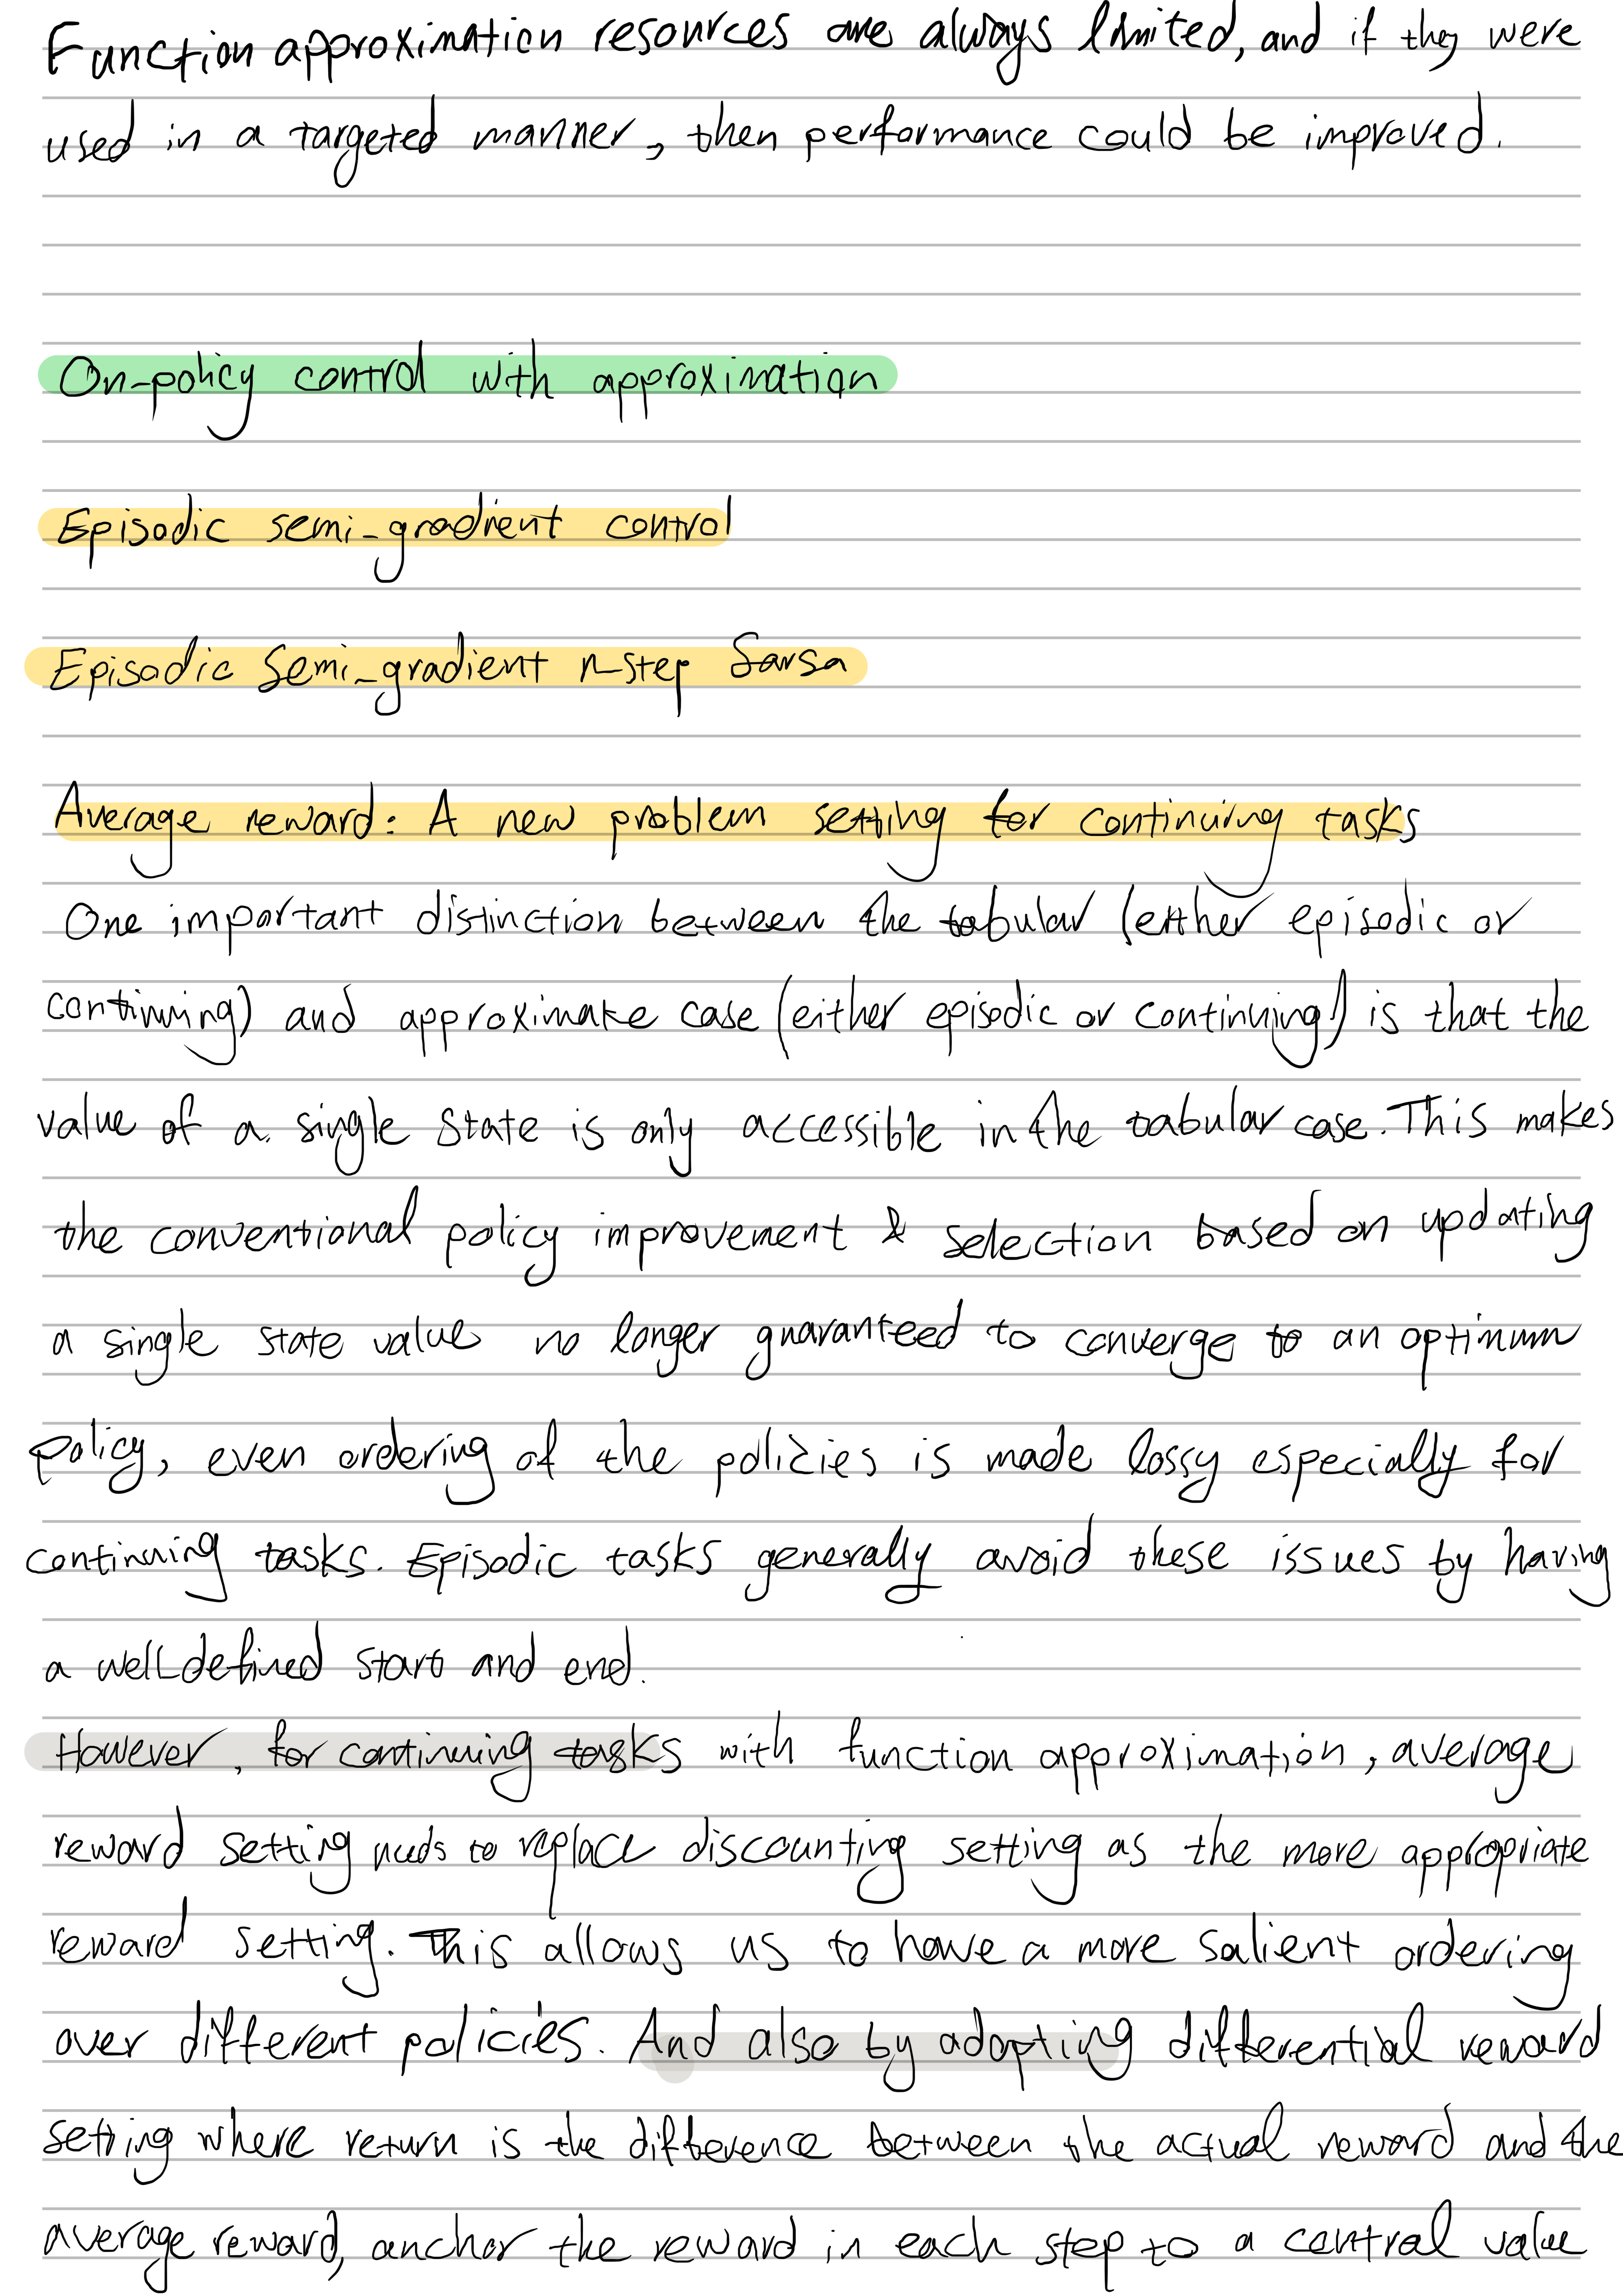 Function approximation resources are always limited, and if they were
used in a targeted manner, then performance could be improved.
On-policy control with approximation
Episodic semi-gradient control
Episodic Semi-gradient n-step Sarsa
Average reward: A new problem setting for continuing tasks
One important distinction between the tabular (either episodic or
continuing) and approximate case (either episodic or continuing) is that the
value of a single state is only accessible in the tabular case. This makes
the conventional policy improvement & selection based on updating
a single state value no longer guaranteed to converge to an optimum
policy, even ordering of the policies is made lossy especially for
continuing tasks. Episodic tasks generally avoid these issues by having
a well-defined start and end.
However, for continuing tasks with function approximation, average
reward setting needs to replace discounting setting as the more appropriate
reward setting. This allows us to have a more salient ordering
over different policies. And also by adopting differential reward
setting where return is the difference between the actual reward and the
average reward, anchor the reward in each step to a central value